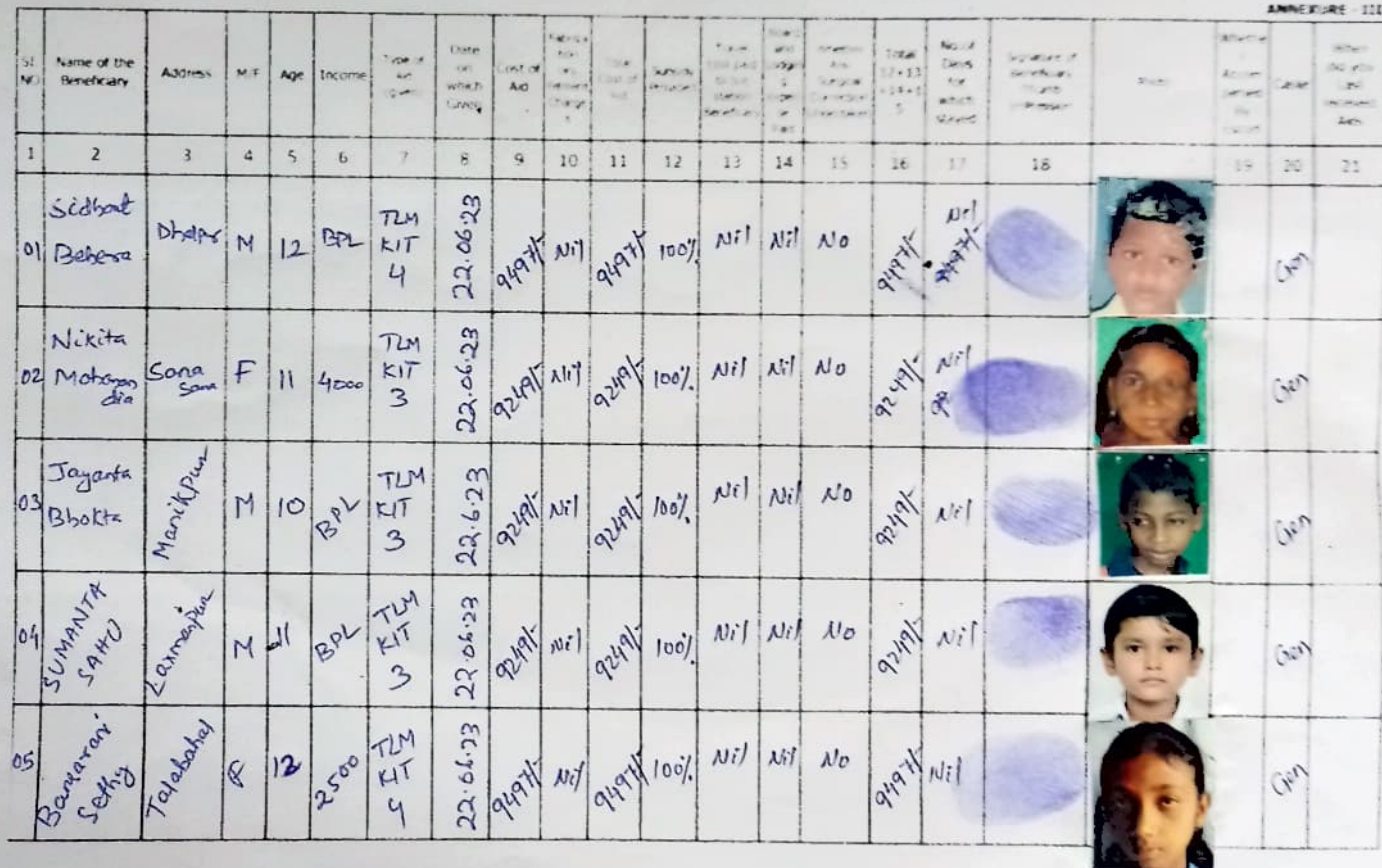 ANNEXURE - III
Sl NO | Name of the Beneficiary | Address | M/F | Age | Income | Type of | Date on which | Cost of Aid | Total Cost of | Subsidy | Total 12+13 +14+15 | No. of Days for which Stayed | Signature of Beneficiary | Caste
1 | 2 | 3 | 4 | 5 | 6 | 7 | 8 | 9 | 10 | 11 | 12 | 13 | 14 | 15 | 16 | 17 | 18 | 19 | 20 | 21
01 | Behera | M | 12 | BPL | TLM KIT 4 | 22.06.23 | 9497/- | Nil | 9497/- | 100% | Nil | Nil | No | 9497/- | Nil | Gen
02 | Nikita | Sana Sana | F | 11 | 4000 | TLM KIT 3 | 22.06.23 | 9249/- | Nil | 9249/- | 100% | Nil | Nil | No | 9249/- | Nil | Gen
03 | Jayanta Bhokta | Manikpur | M | 10 | BPL | TLM KIT 3 | 22.6.23 | 9249/- | Nil | 9249/- | 100% | Nil | Nil | No | 9249/- | Nil | Gen
04 | SUMANTA SAHU | Laxmanpur | M | 11 | BPL | TLM KIT 3 | 22.06.23 | 9249/- | Nil | 9249/- | 100% | Nil | Nil | No | 9249/- | Nil | Gen
05 | Sethy | F | 12 | 2500 | TLM KIT 4 | 22.06.23 | 9497/- | Nil | 9497/- | 100% | Nil | Nil | No | 9497/- | Nil | Gen